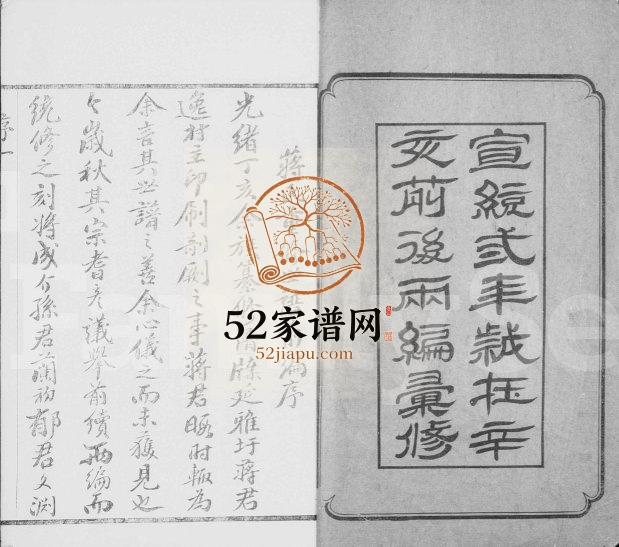 宣統弎年歲在辛
亥前後兩編彙修
蔣 編序
光緒丁亥余族纂修 牒延雅圩蔣君
逸村主印刷剞劂之事蔣君暇時輒為
余言其世譜之善余心儀之而未獲見也
今歲秋其宗耆彥議舉前續兩編而
統修之刻將成介孫君蘭初郁君文淵
序一
52家谱网
52jiapu.com